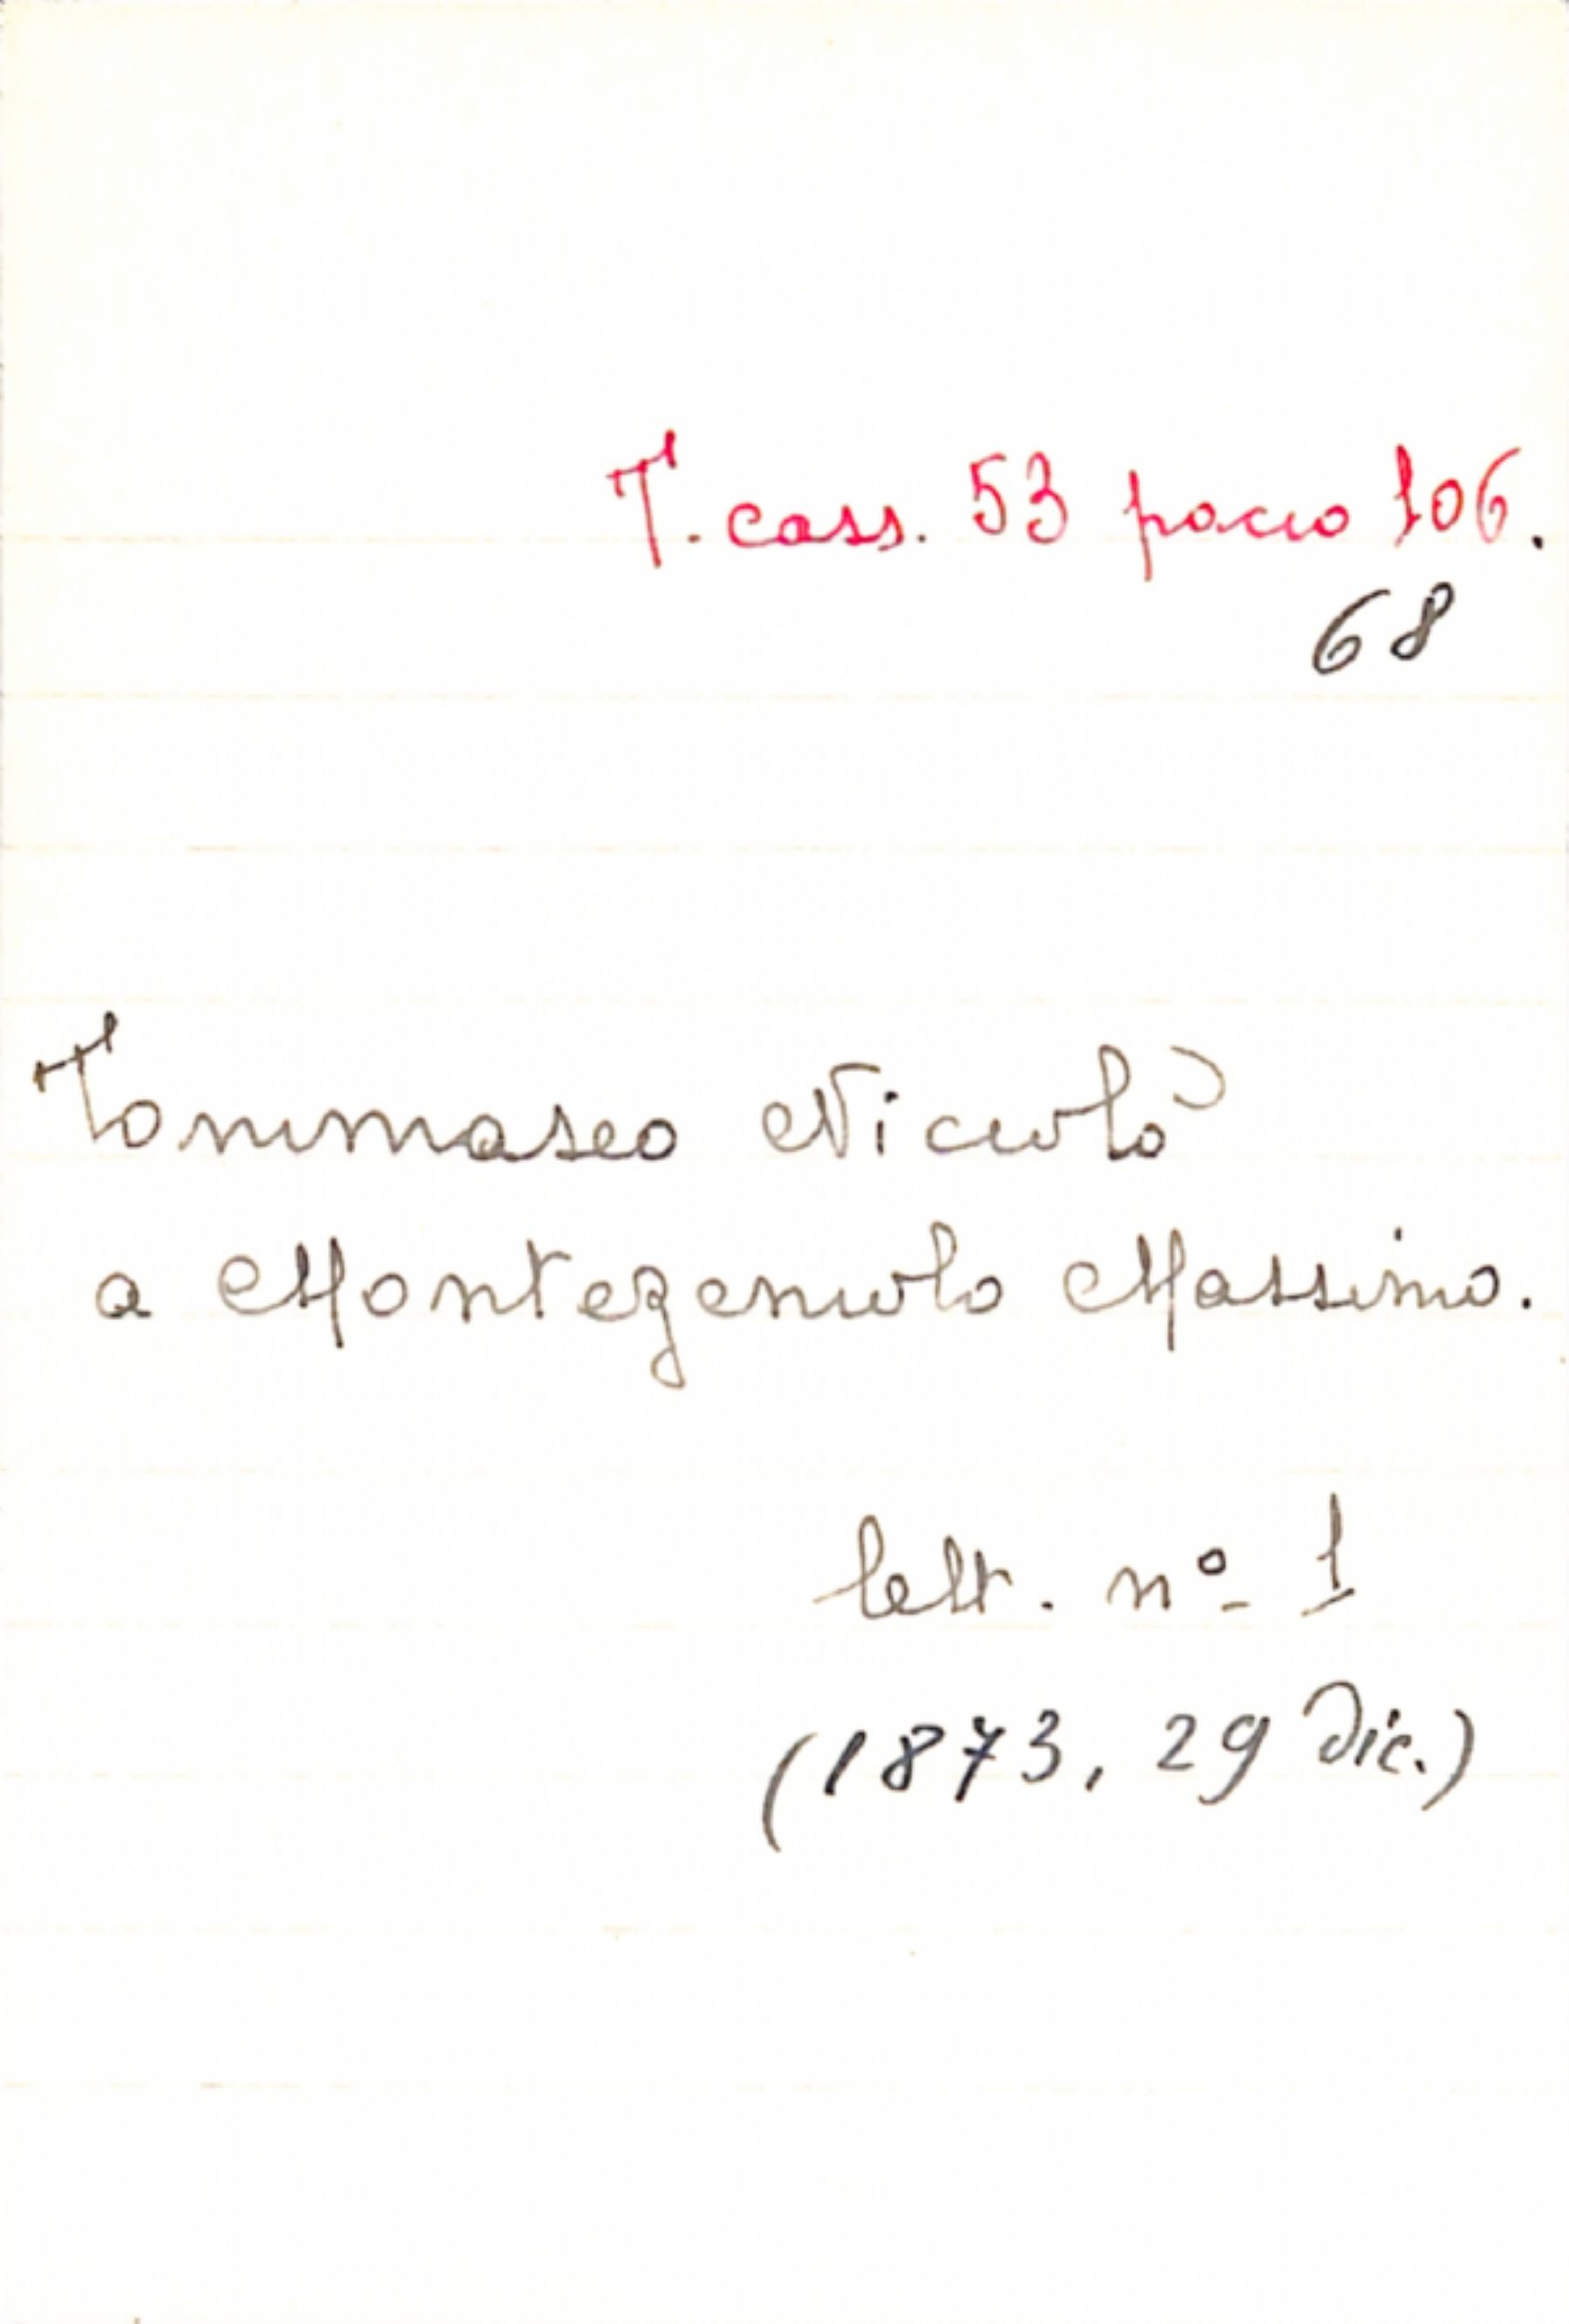 T. cass. 53 pacco 106.
68
Tommaseo Niccolò
a Montezemolo Massimo.
lett. nº 1
(1873, 29 Dic.)